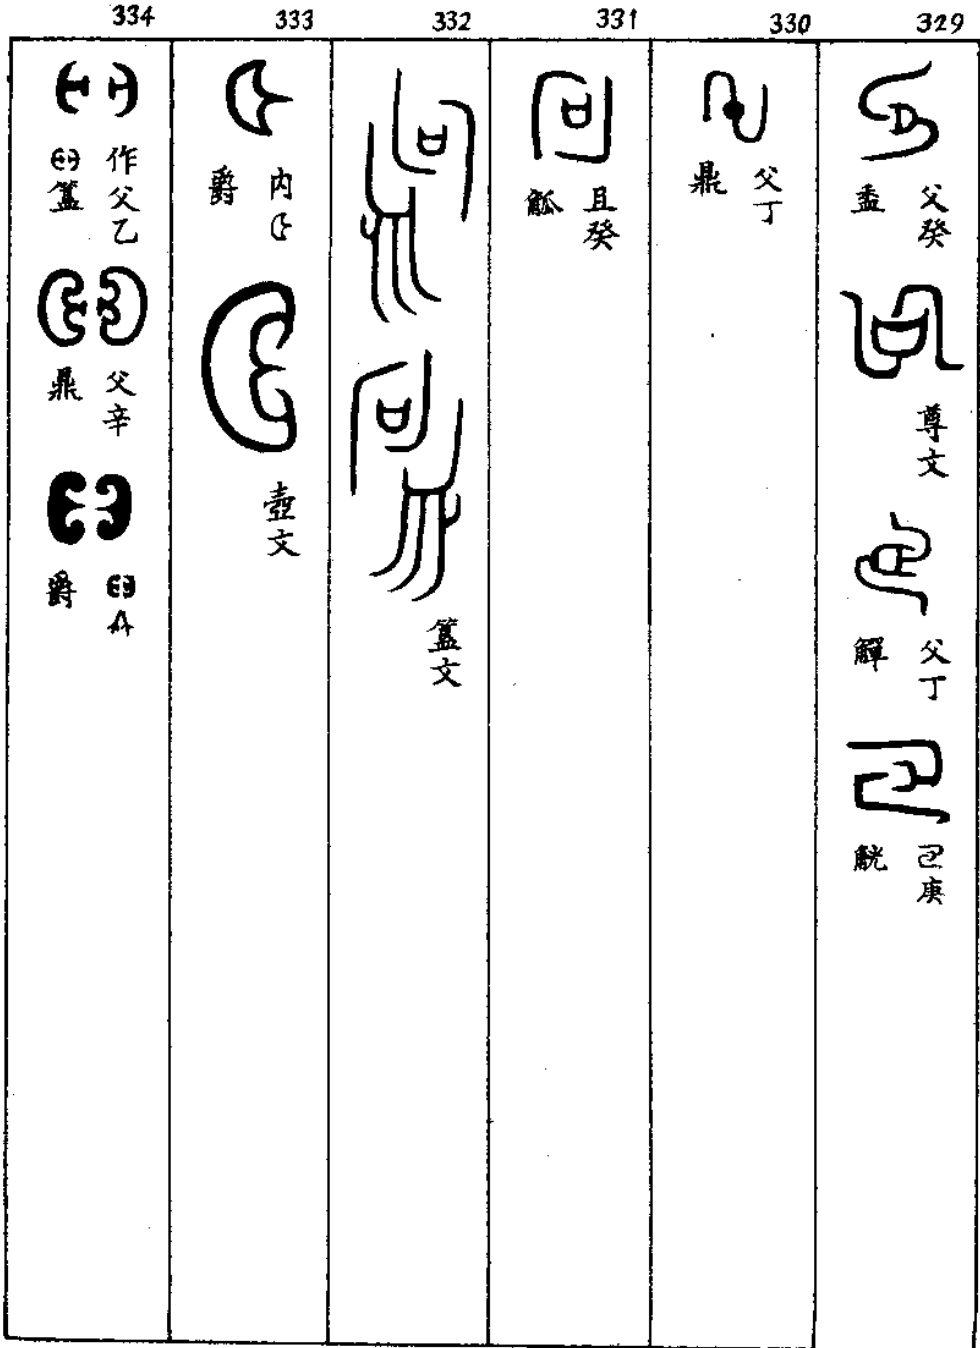 329
父癸
盉
尊文
父丁
觶
庚
觥
330
父丁
鼎
331
且癸
觚
332
簋文
333
內
爵
壺文
334
作父乙
簋
父辛
鼎
爵